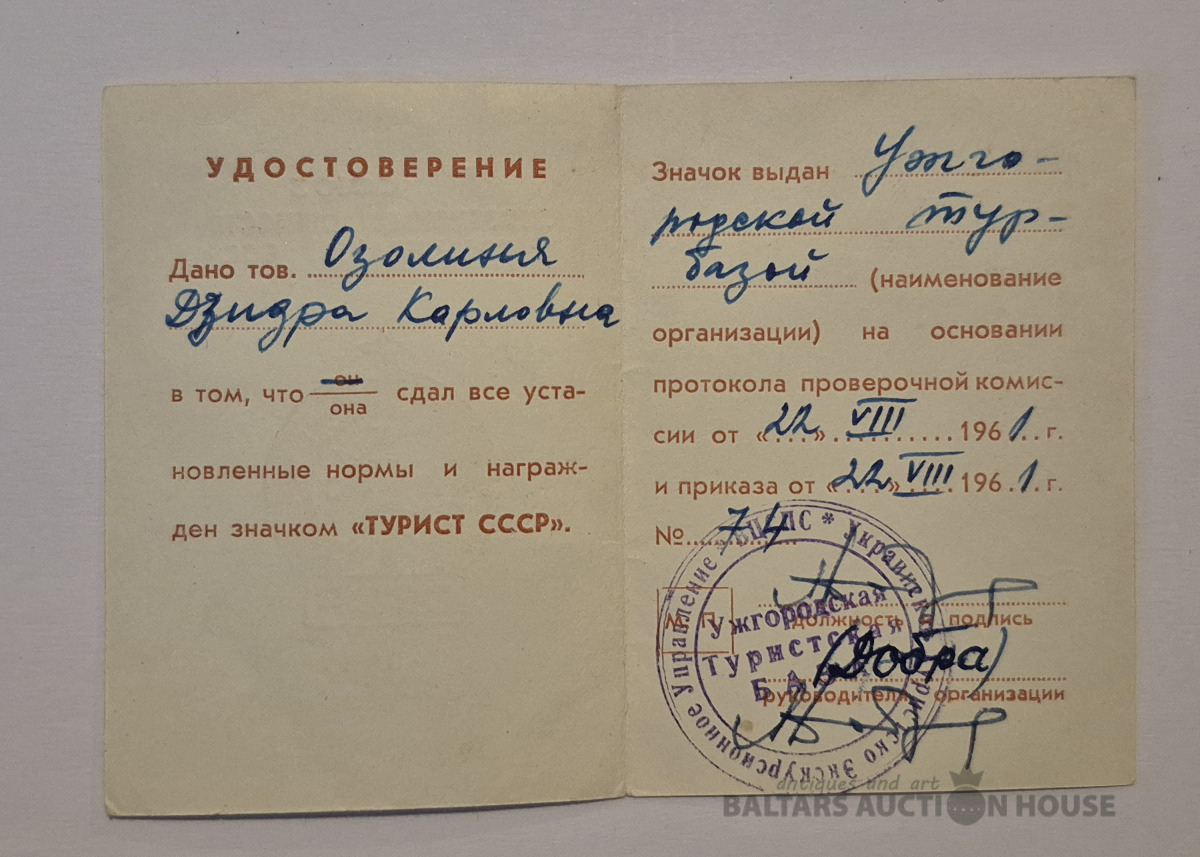 УДОСТОВЕРЕНИЕ
Дано тов. Озолиня
Дзидра Карловна
в том, что он
она сдал все уста-
новленные нормы и награж-
ден значком «ТУРИСТ СССР».
Значок выдан Ужго-
родской тур-
базой (наименование
организации) на основании
протокола проверочной комис-
сии от «22» VIII 1961 г.
и приказа от «22» VIII 1961 г.
№ 74
М П
должность подпись
(Добра)
руководителя организации
ВЦСПС * Украинское Туристско Экскурсионное Управление *
Ужгородская
Туристская
База
antiques and art
BALTARS AUCTION HOUSE